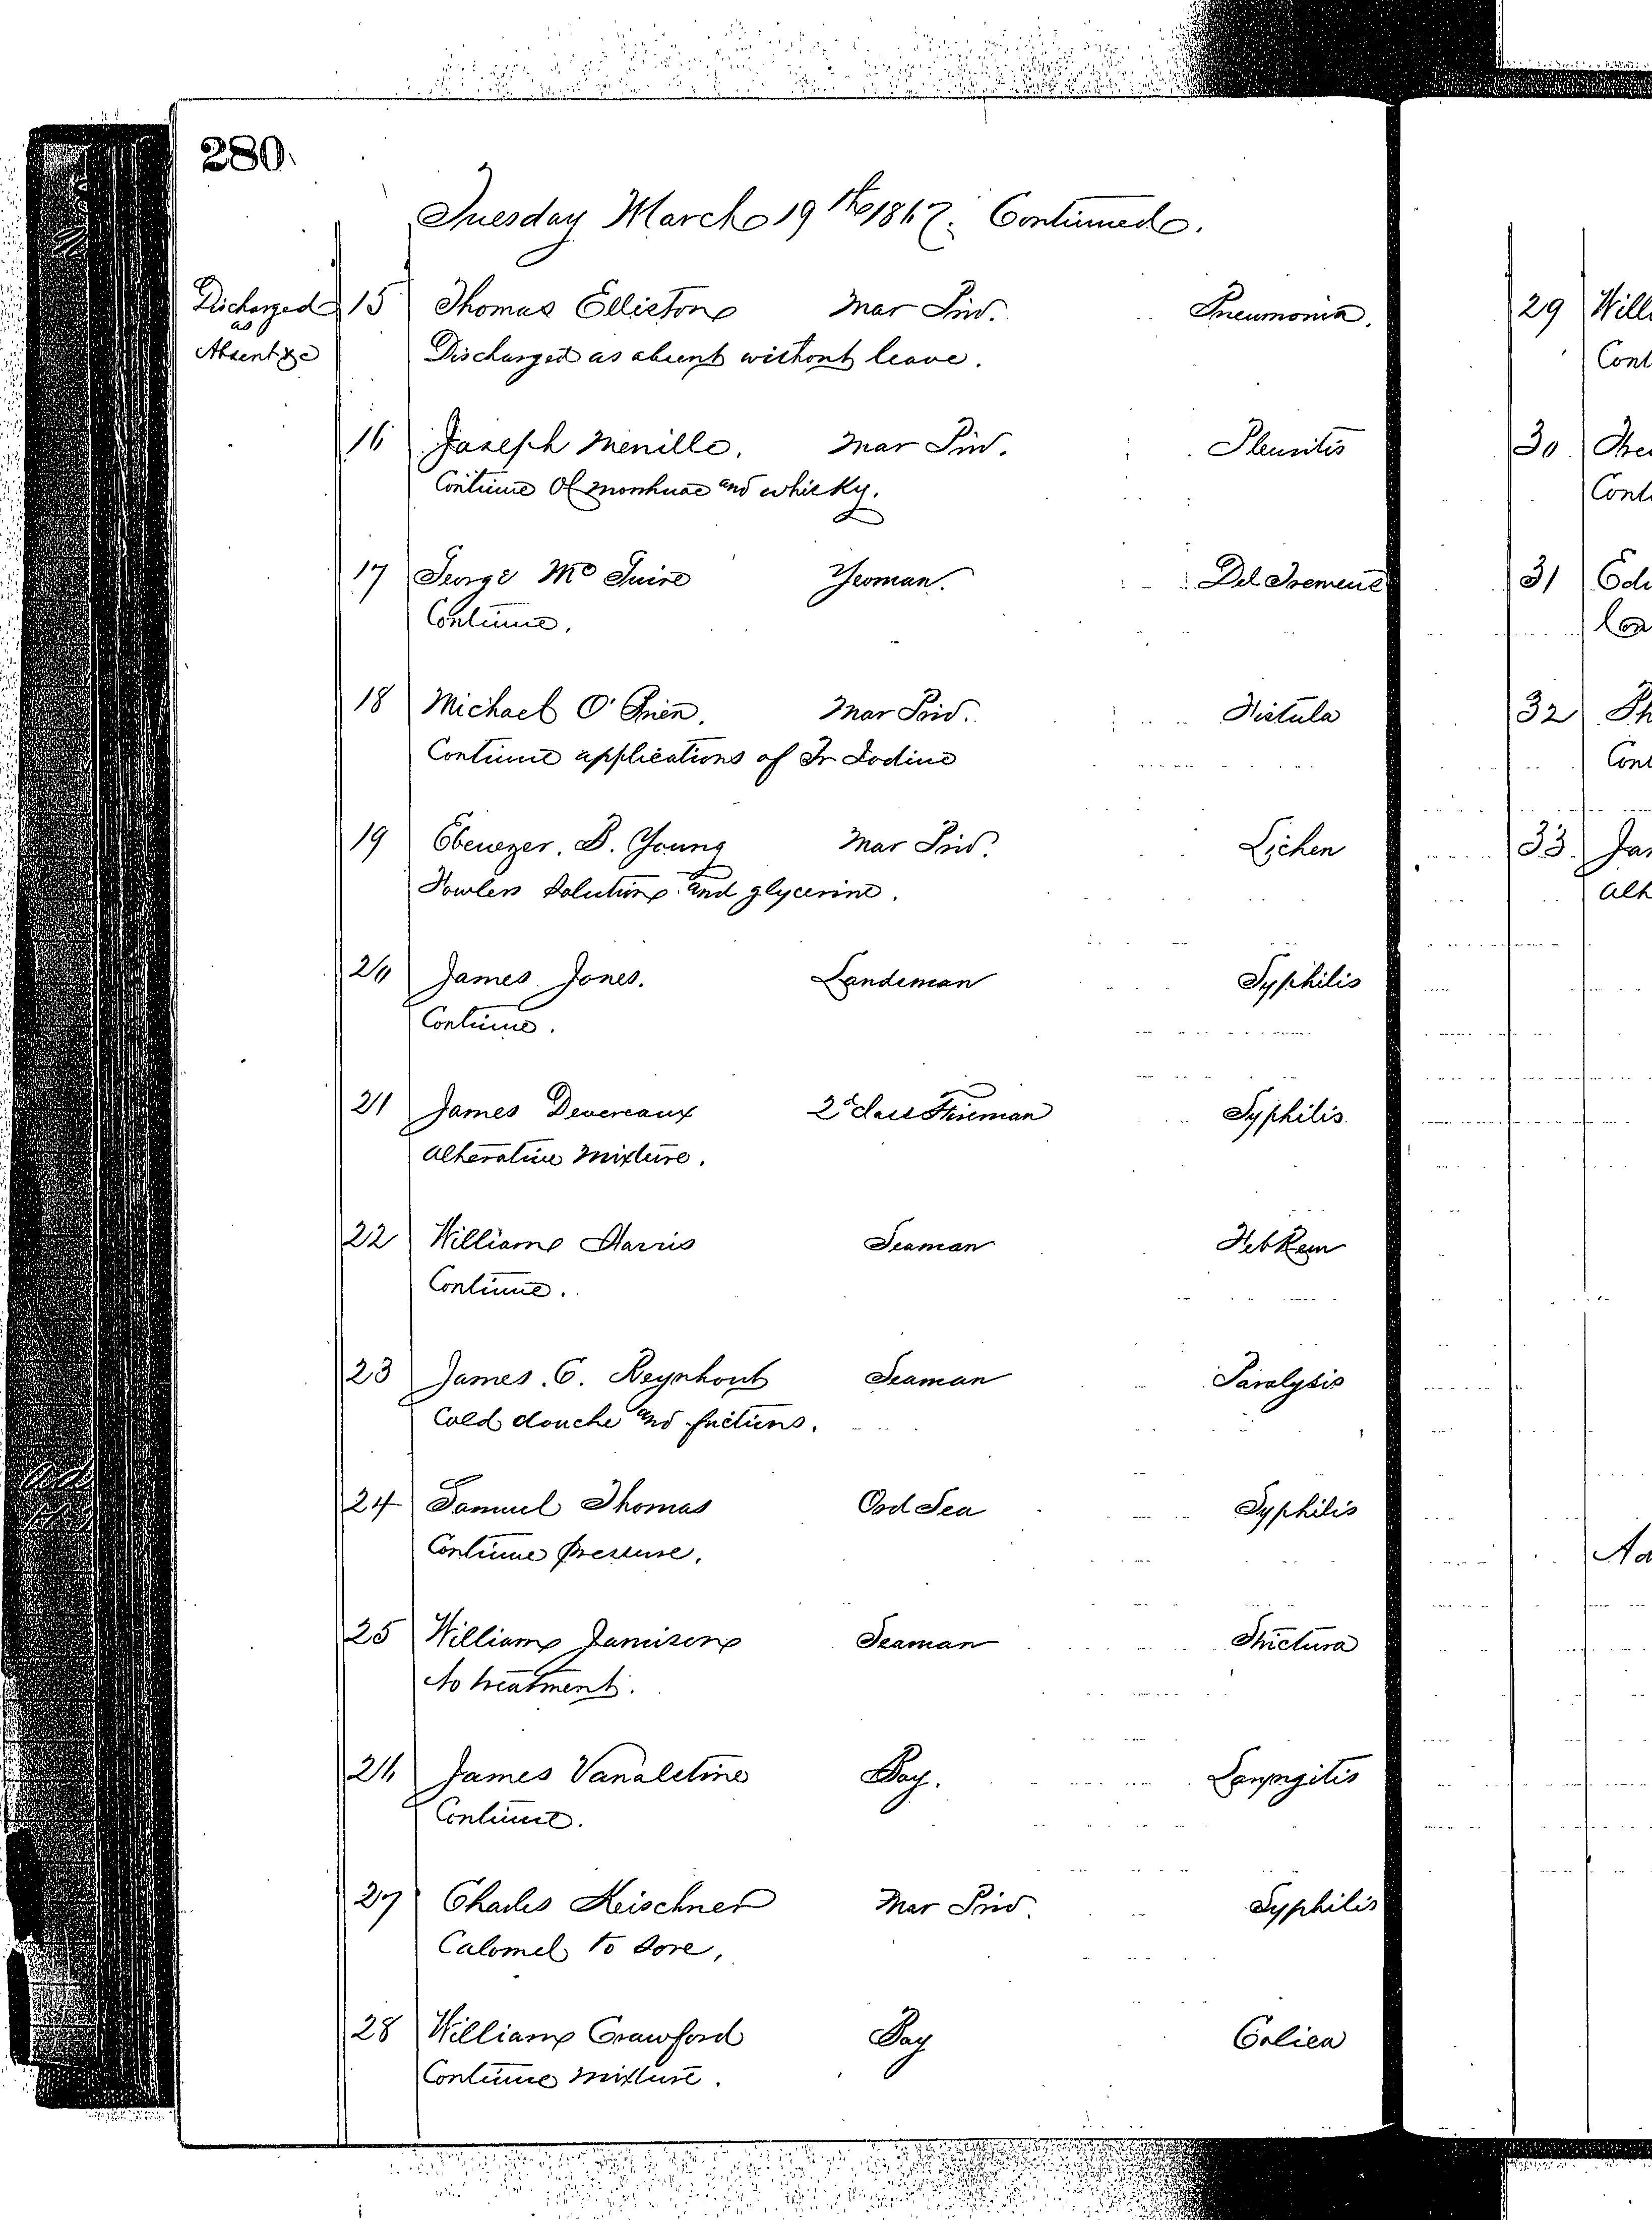 280
Tuesday March 19th 1867. Continued.
Discharged as Absent &c
15 Thomas Elliston Mar Priv. Pneumonia.
Discharged as absent without leave.
16 Joseph Menille. Mar Priv. Pleuritis
Continue Ol morrhuae and whisky.
17 George McGuire Yeoman. Del Tremens
Continue.
18 Michael O'Brien. Mar Priv. Fistula
Continue applications of Tr Iodine
19 Ebenezer. B. Young Mar Priv. Lichen
Fowlers Solution and glycerine.
20 James Jones. Landsman Syphilis
Continue.
21 James Devereaux 2d class Fireman Syphilis
Alterative mixture.
22 William Harris Seaman Feb Rem
Continue.
23 James. C. Reynhout Seaman Paralysis
Cold douche and frictions.
24 Samuel Thomas Ord Sea Syphilis
Continue pressure.
25 William Jamison Seaman Strictura
No treatment.
26 James Vanalstine Boy. Laryngitis
Continue.
27 Charles Keischner Mar Priv. Syphilis
Calomel to sore.
28 William Crawford Boy Colica
Continue mixture.
29 Will
Cont
30
Cont
31 Edw
Con
32
Cont
33 Jam
Alt
Ad